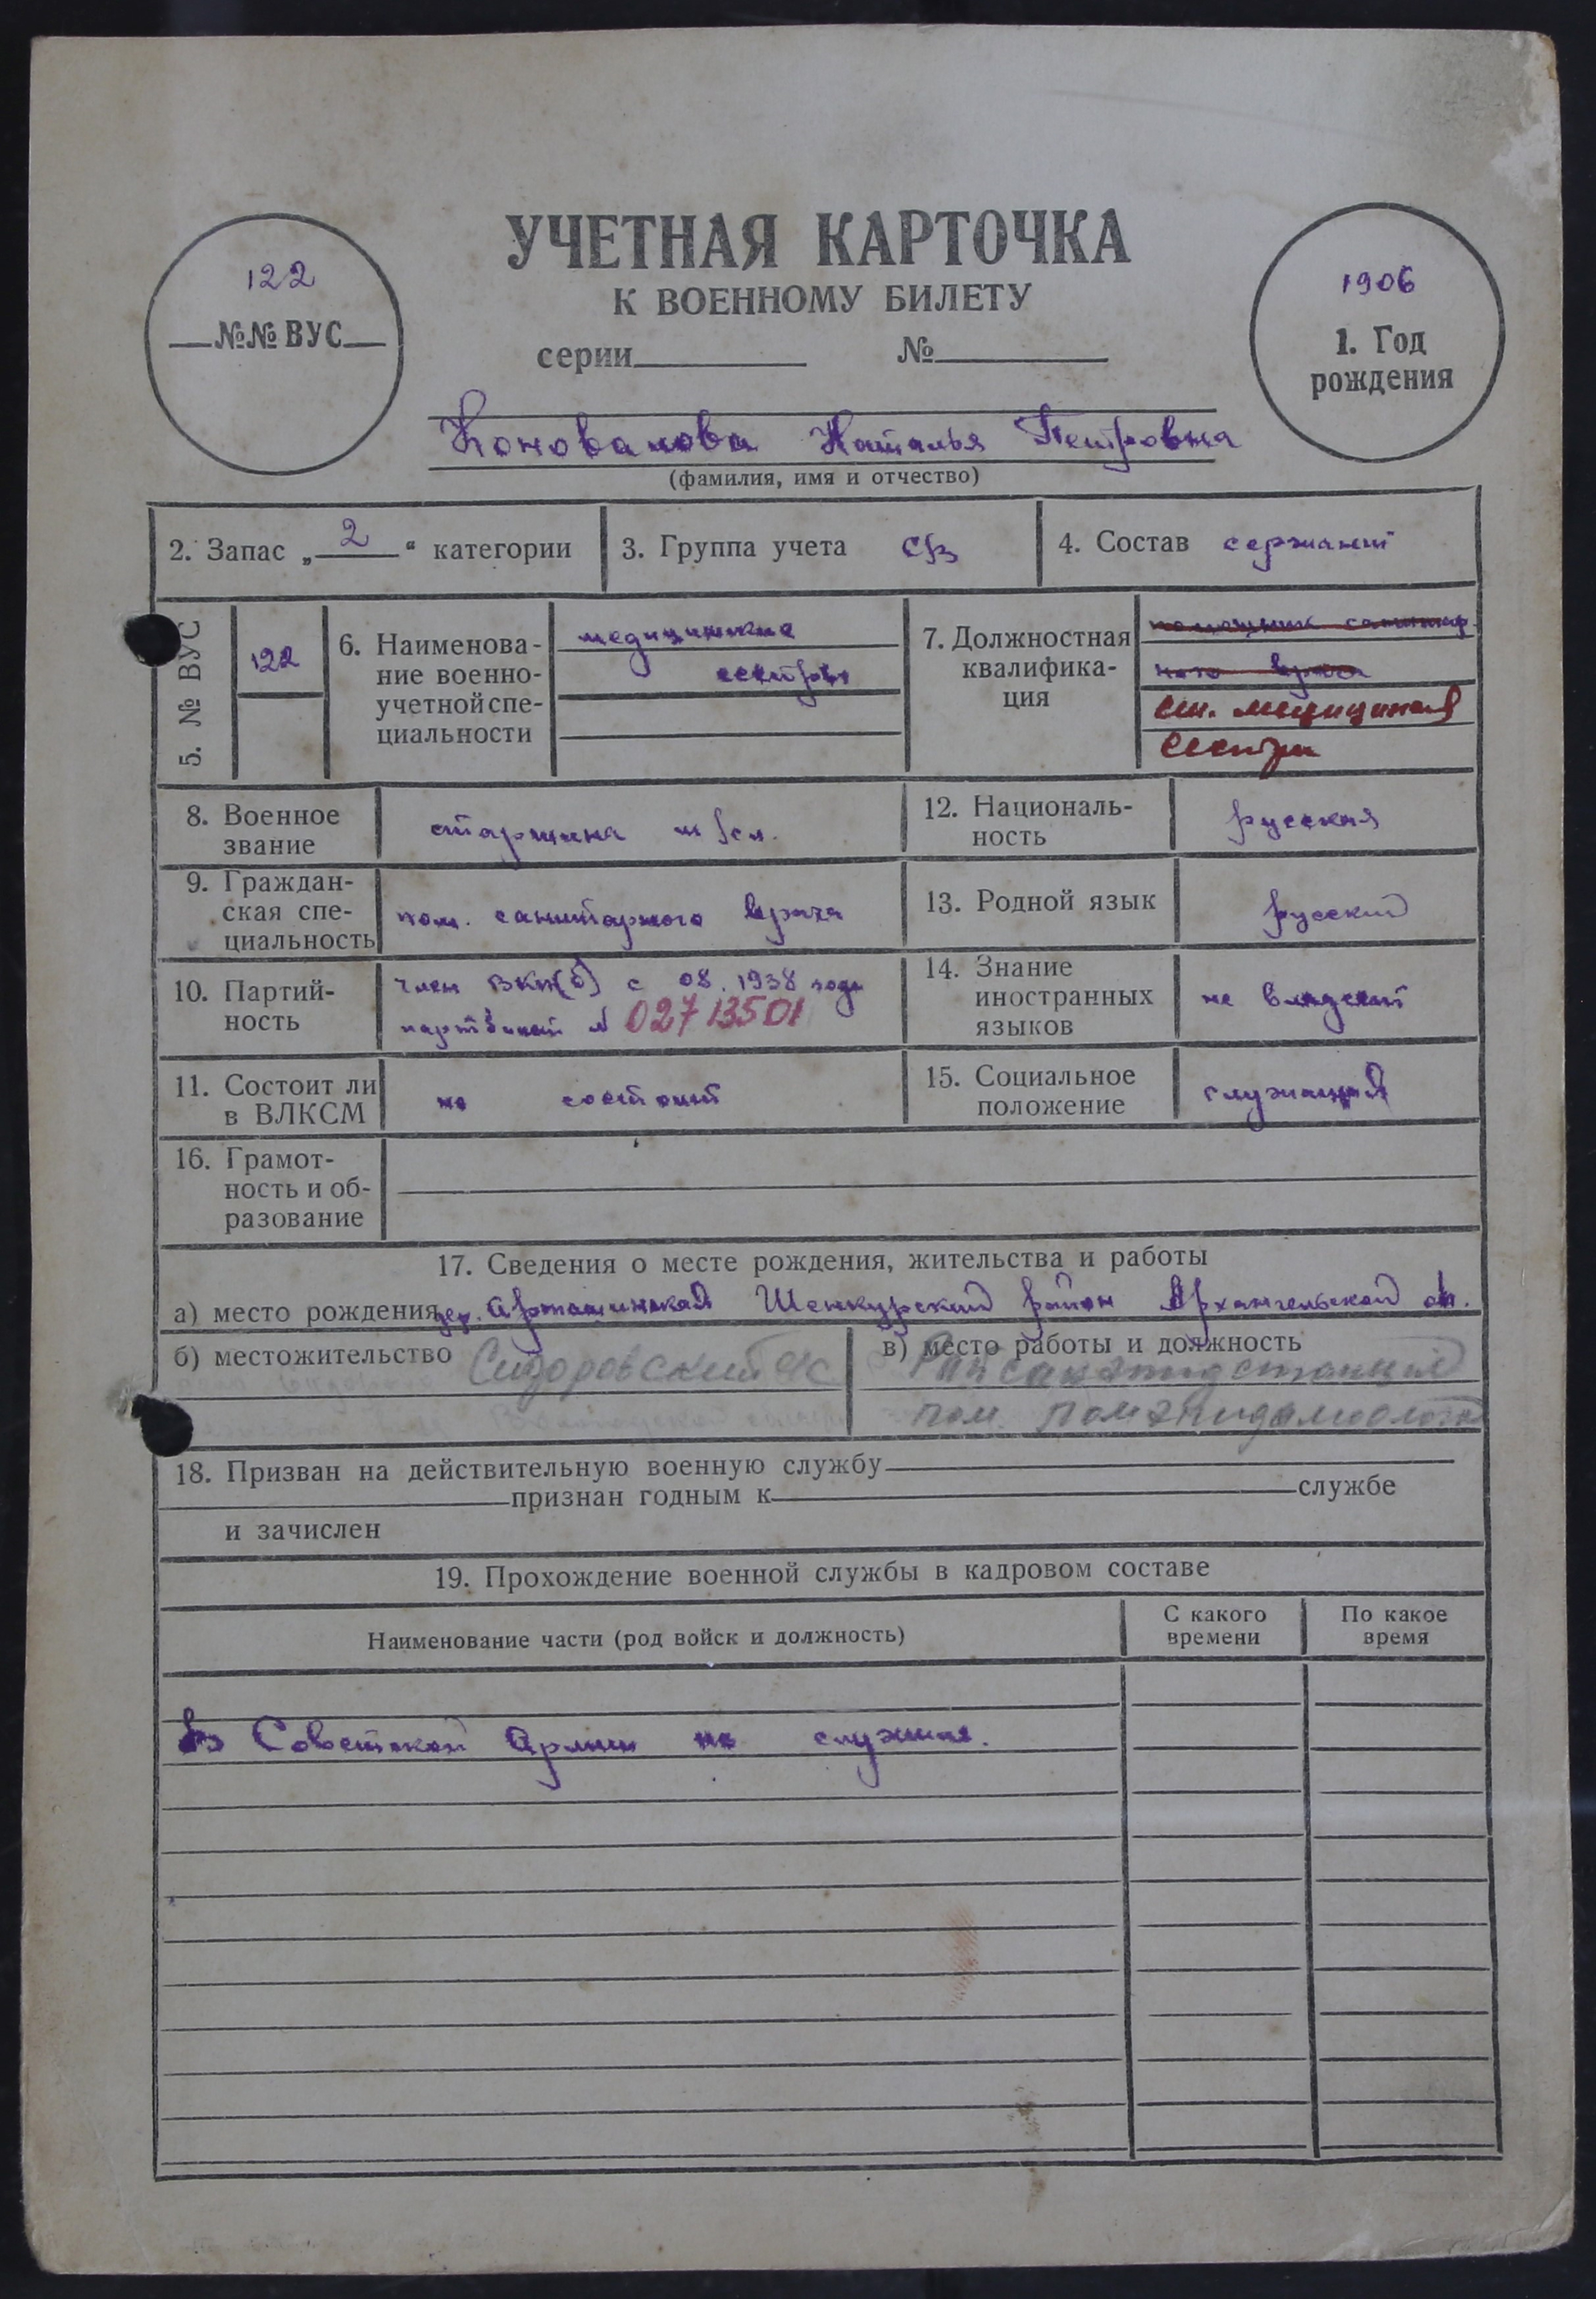 УЧЕТНАЯ КАРТОЧКА
К ВОЕННОМУ БИЛЕТУ
серии № 
122
№№ ВУС
1906
1. Год
рождения
Коновалова Наталья Петровна
(фамилия, имя и отчество)
2. Запас „2“ категории
3. Группа учета
4. Состав сержант
5. № ВУС
122
6. Наименова-
ние военно-
учетной спе-
циальности
медицинские
сестры
7. Должностная
квалифика-
ция
помощник санитар
ного врача
ст. медицинская
сестра
8. Военное
звание
старшина м/сл.
9. Граждан-
ская спе-
циальность
пом. санитарного врача
10. Партий-
ность
член ВКП(б) с 08.1938 года
партбилет № 02713501
11. Состоит ли
в ВЛКСМ
не состоит
12. Националь-
ность
русская
13. Родной язык
русский
14. Знание
иностранных
языков
не владеет
15. Социальное
положение
служащая
16. Грамот-
ность и об-
разование
17. Сведения о месте рождения, жительства и работы
а) место рождения дер. Шенкурский район Архангельской об.
б) местожительство Сидоровский
в) место работы и должность
Рай санэпидстанция
пом.
18. Призван на действительную военную службу
признан годным к службе
и зачислен
19. Прохождение военной службы в кадровом составе
Наименование части (род войск и должность)
С какого
времени
По какое
время
В Советской Армии не служила.